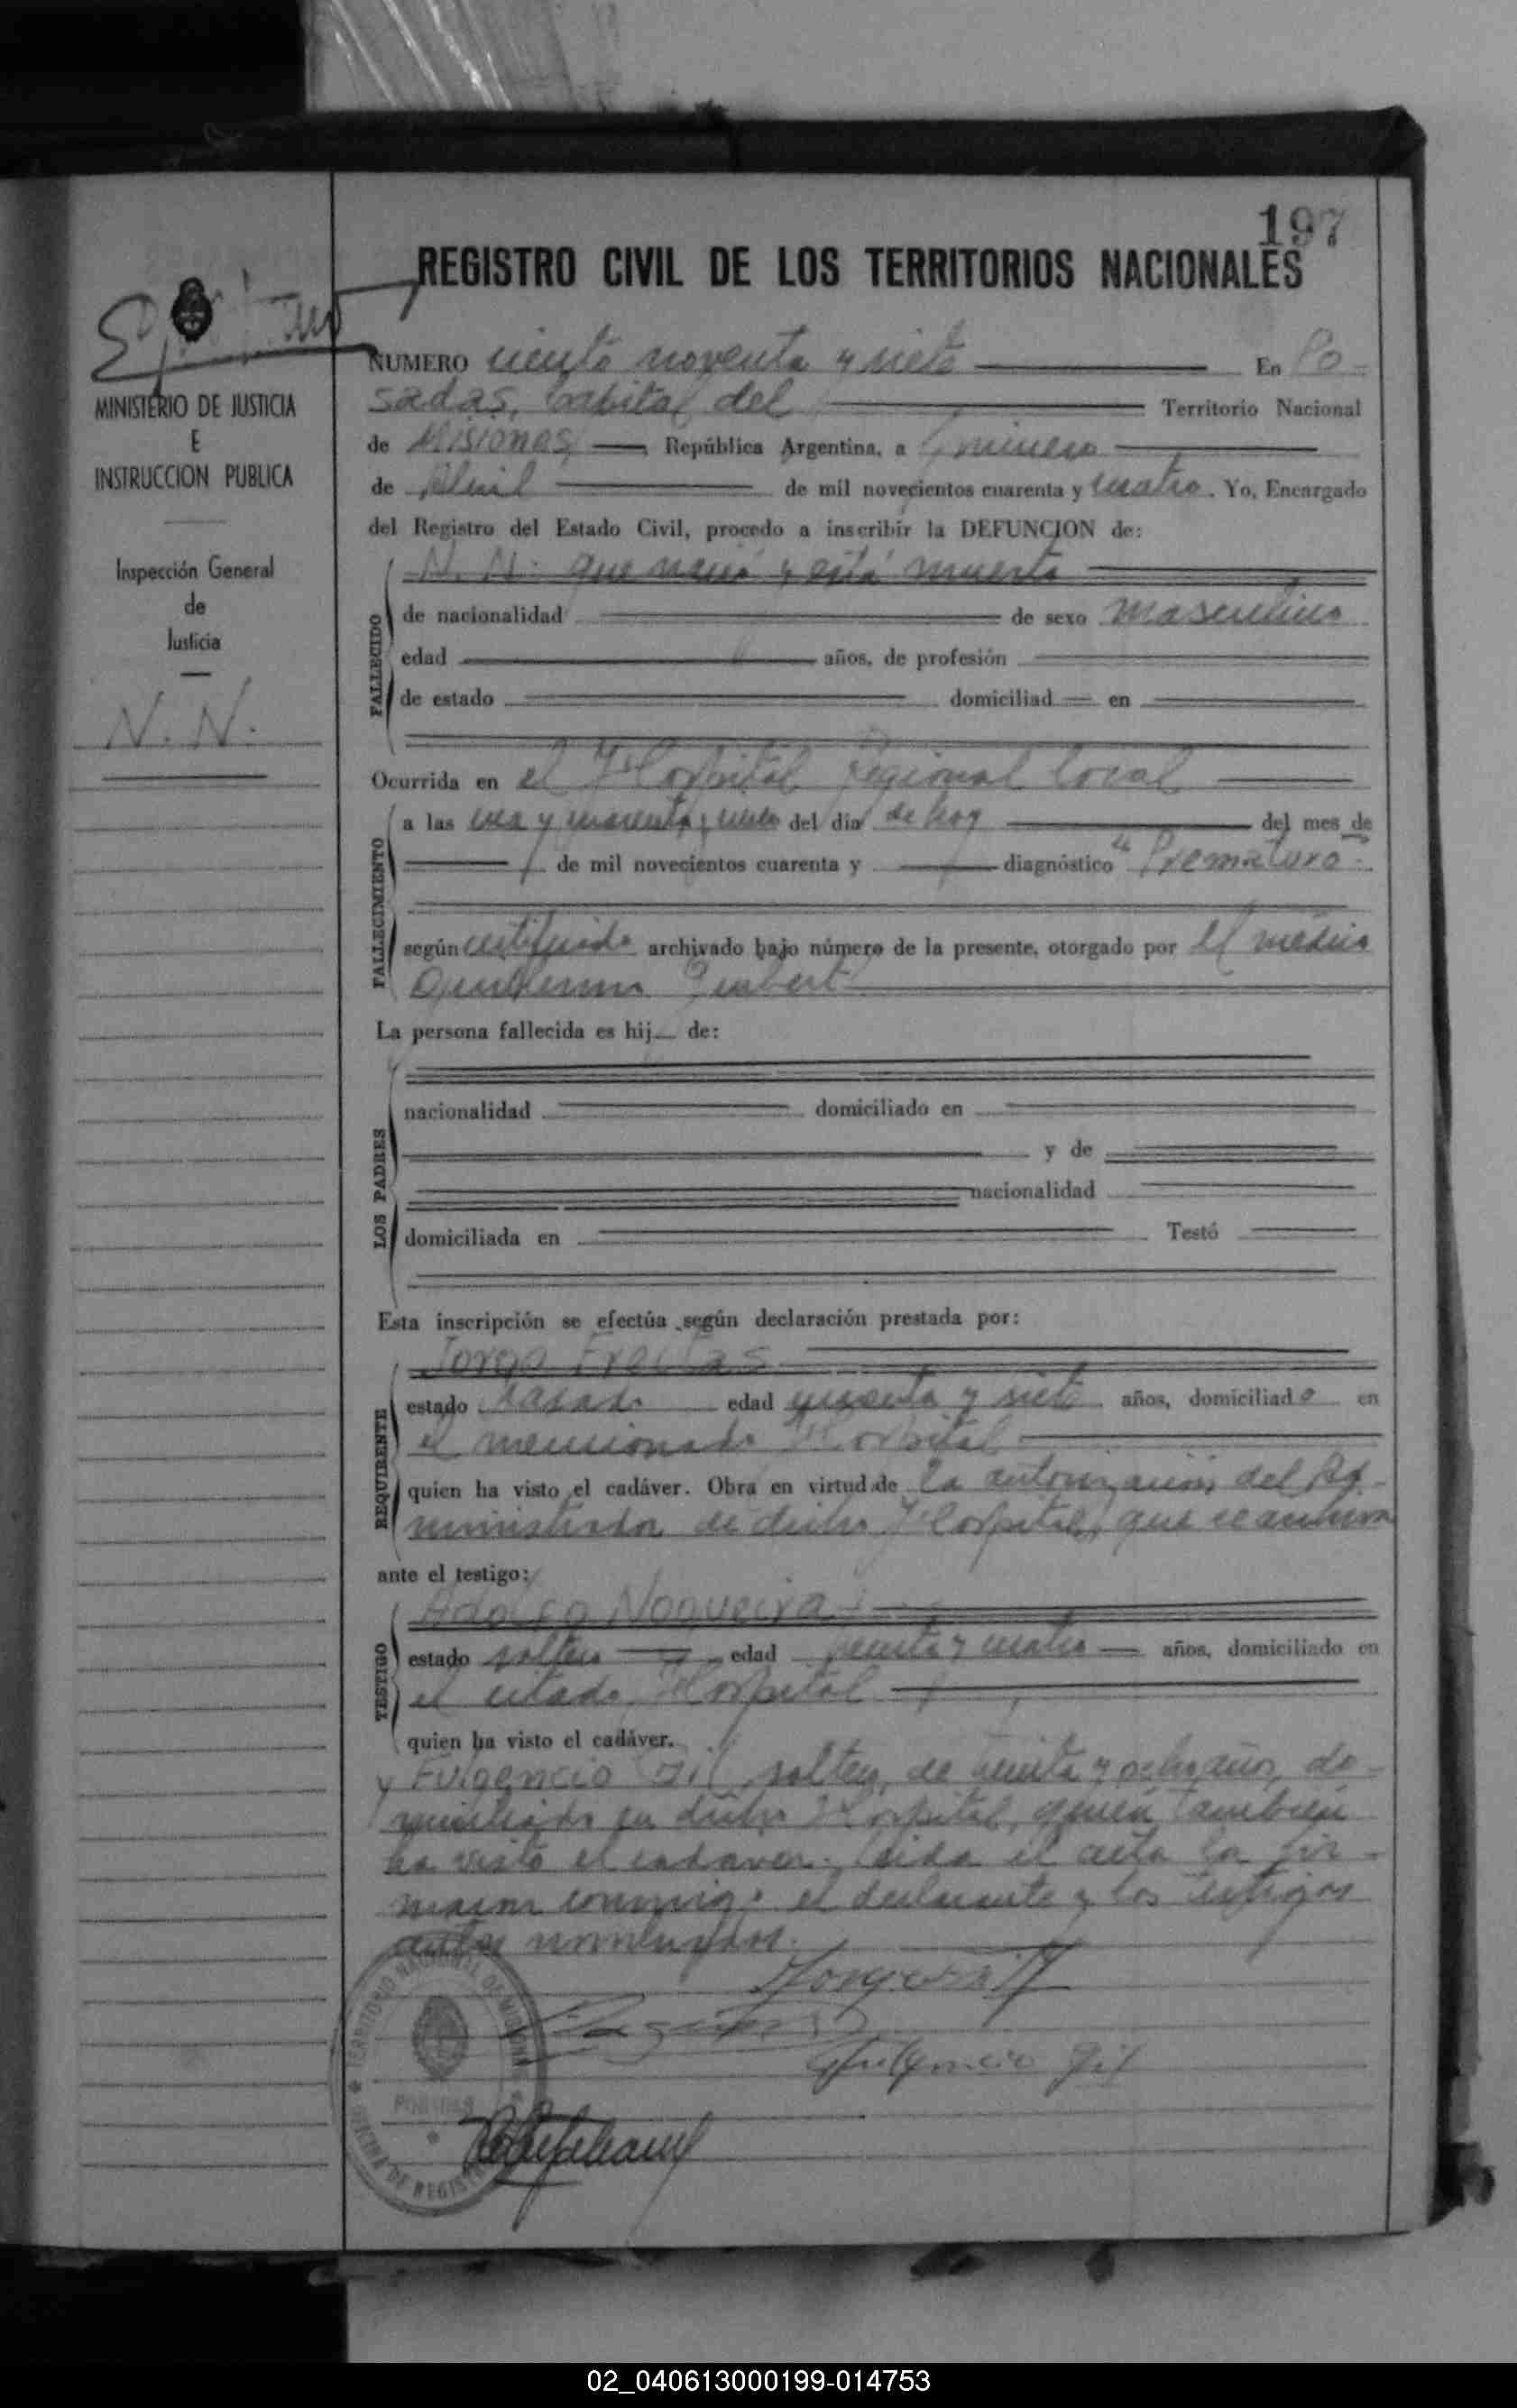 197
REGISTRO CIVIL DE LOS TERRITORIOS NACIONALES
MINISTERIO DE JUSTICIA
E
INSTRUCCION PUBLICA
Inspección General
de
Justicia
N. N.
NUMERO ciento noventa y siete En Po-
sadas, Capital del Territorio Nacional
de Misiones República Argentina, a primero
de Abril de mil novecientos cuarenta y cuatro. Yo, Encargado
del Registro del Estado Civil, procedo a inscribir la DEFUNCION de:
FALLECIDO
N. N. que nació y está muerto
de nacionalidad de sexo masculino
edad años, de profesión
de estado domiciliad en
Ocurrida en el Hospital Regional local
FALLECIMIENTO
a las una y cuarenta y cinco del día de hoy del mes de
de mil novecientos cuarenta y diagnóstico "Prematuro"
según certificado archivado bajo número de la presente, otorgado por el médico
Guillermo
La persona fallecida es hij de:
LOS PADRES
nacionalidad domiciliado en
y de
nacionalidad
domiciliada en Testó
Esta inscripción se efectúa según declaración prestada por:
REQUIRENTE
Jorge Freitas
estado casado edad y siete años, domiciliado en
el mencionado Hospital
quien ha visto el cadáver. Obra en virtud de la autorización del Ad-
ministrador de dicho Hospital, que se archiva
ante el testigo:
TESTIGO
Adolfo Nogueira
estado soltero edad treinta y cuatro años, domiciliado en
el citado Hospital
quien ha visto el cadáver.
y Fulgencio Gil, soltero, de treinta y ocho años, do-
miciliado en dicho Hospital, quien también
ha visto el cadaver. Leida el acta la fir-
maron conmigo el declarante y los testigos
antes nombrados.
Fulgencio Gil
TERRITORIO NACIONAL DE MISIONES
POSADAS
OFICINA DE REGISTRO
02_040613000199-014753